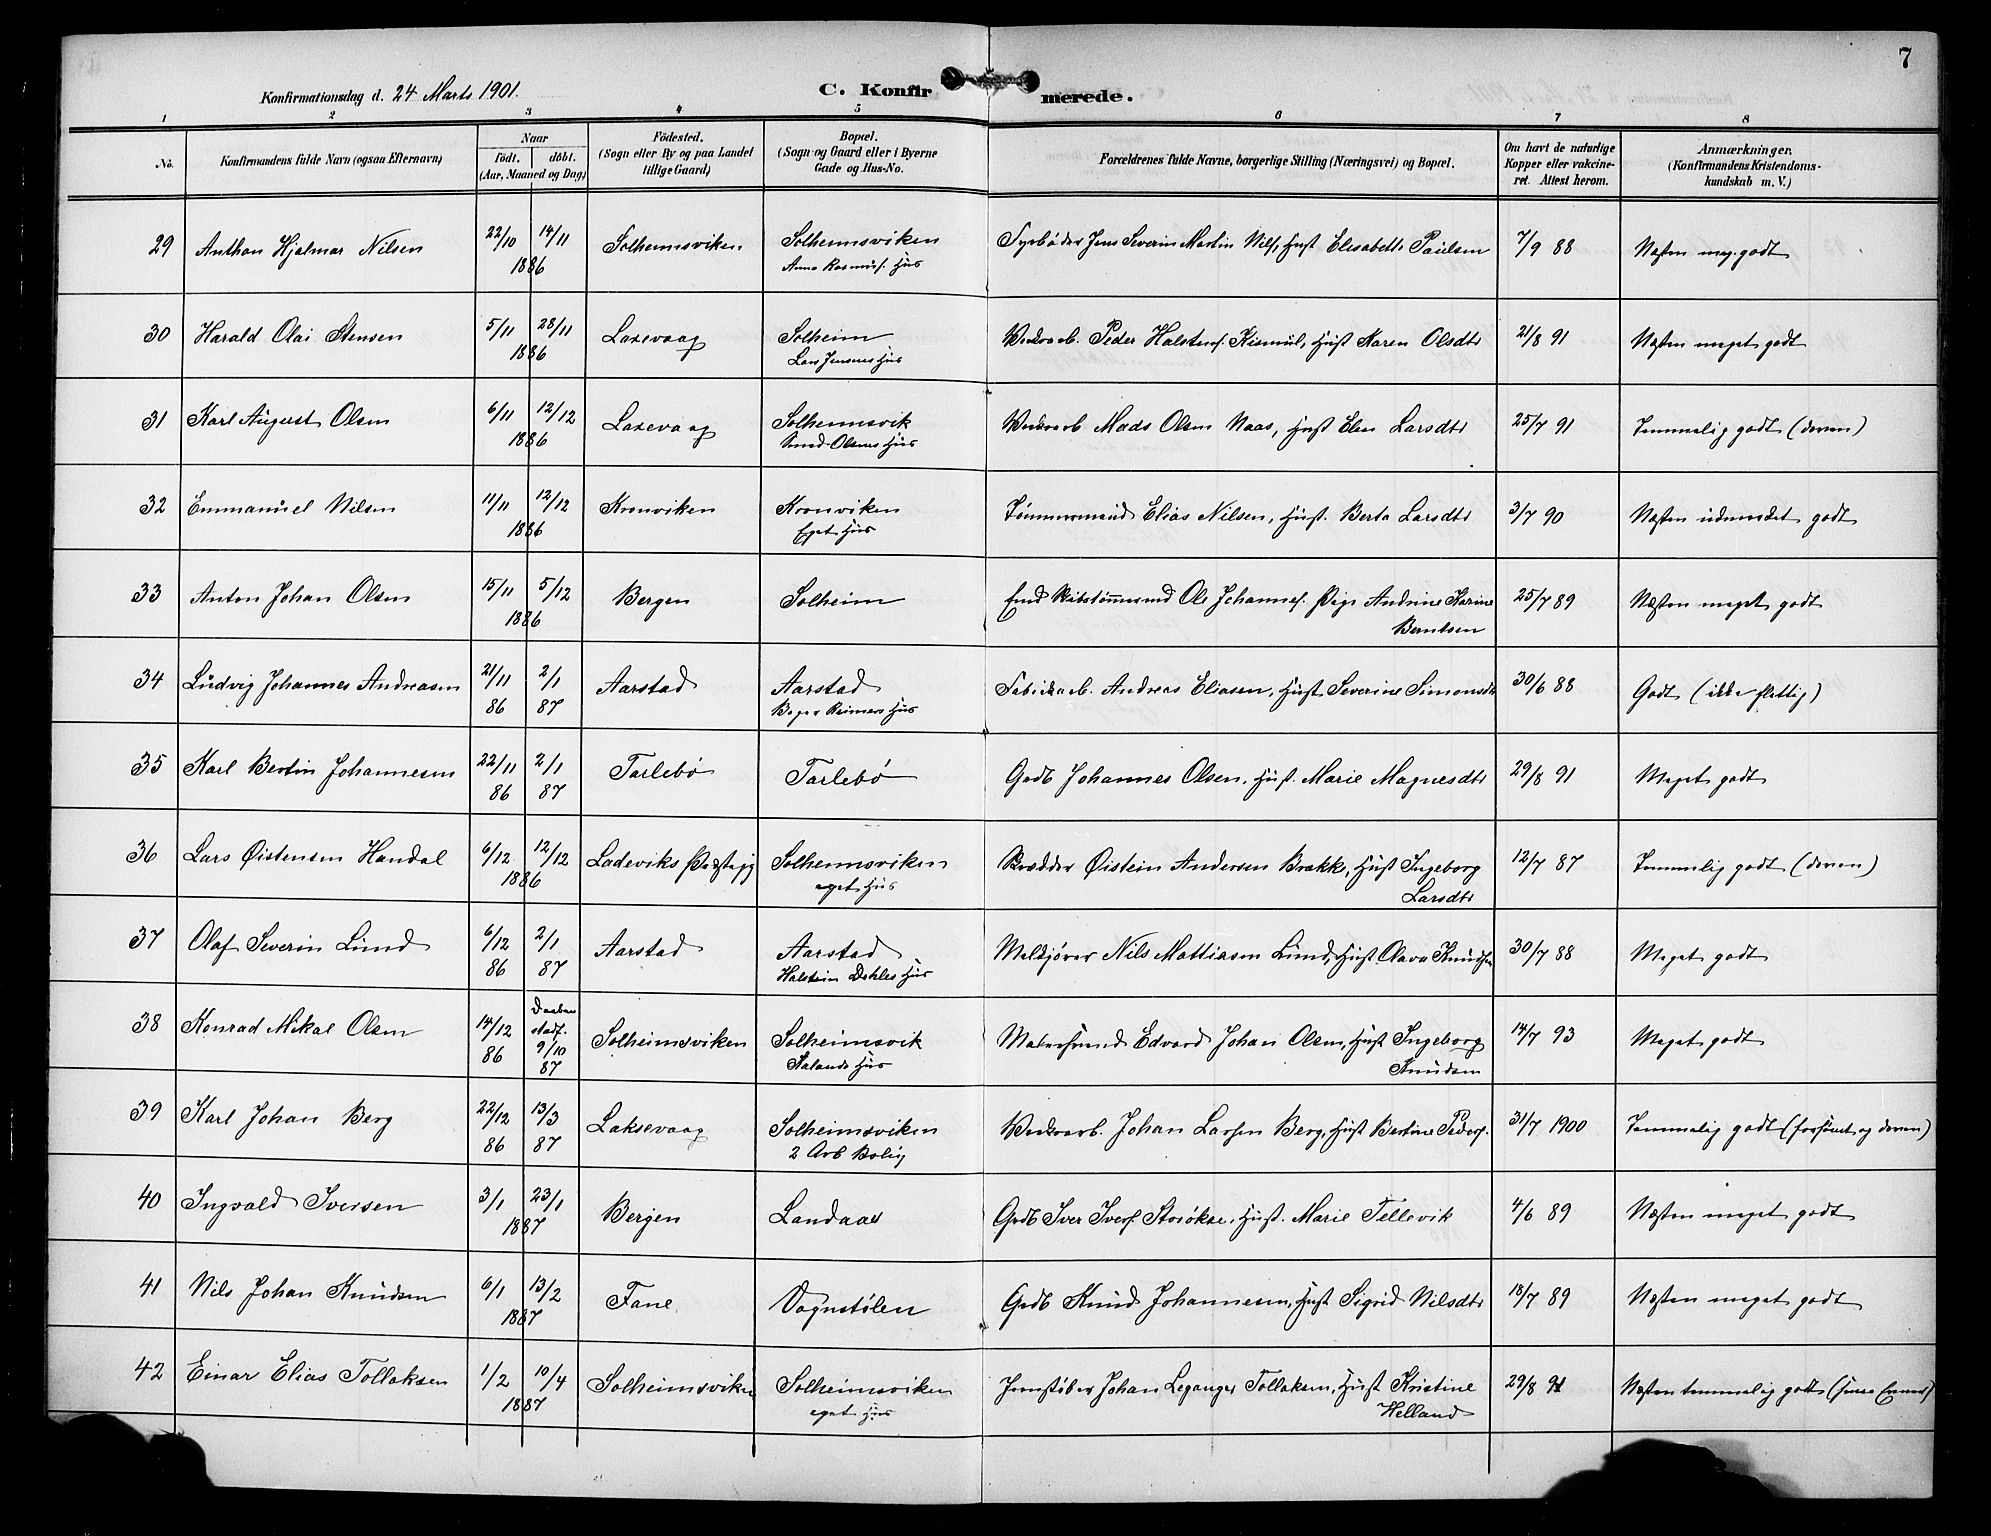 7
Konfirmationsdag d. 24 Marts 1901.
C. Konfirmerede.
1 2 3 4 5 6 7 8
No.
Konfirmandens fulde Navn (ogsaa Efternavn)
Naar
födt. döbt.
(Aar, Maaned og Dag)
Födested.
(Sogn eller By og paa Landet
tillige Gaard)
Bopæl.
(Sogn og Gaard eller i Byerne
Gade og Hus-No.
Forældrenes fulde Navne, borgerlige Stilling (Næringsvei) og Bopæl.
Om havt de naturlige
Kopper eller vakcine-
ret. Attest herom.
Anmærkninger.
(Konfirmandens Kristendoms-
kundskab m. V.)
29 Anthon Hjalmar Nilsen 22/10 14/11 Solheimsviken Solheimsviken Fyrbøder Jens Severin Martin Nils., Hust Elisabeth Paulsen 7/9 88 Næsten meg. godt
1886 Anna Rasmus. Hus
30 Harald Olai Stensen 5/11 28/11 Laxevaag Solheim Værksarb. Peder Halstens. Kismul, Hust Karen Olsdtr 21/8 91 Næsten meget godt
1886 Lars Jensens Hus
31 Karl August Olsen 6/11 12/12 Laxevaag Solheimsvik Værksarb Mads Olsen Naas, Hust Elen Larsdtr 25/7 91 Temmelig godt (doven)
1886 Smed Olsens Hus
32 Emmanuel Nilsen 11/11 12/12 Kronviken Kronviken Tømmermand Elias Nilsen, Hust. Berta Larsdtr 3/7 90 Næsten udmærket godt
1886 Eget Hus
33 Anton Johan Olsen 15/11 5/12 Bergen Solheim Ole Johannes. Pige Andrine Karine 25/7 89 Næsten meget godt
1886 Berntsen
34 Ludvig Johannes Andreasen 21/11 2/1 Aarstad Aarstad Fabrikarb. Andreas Eliasen, Hust Severine Simonsdtr 30/6 88 Godt (ikke flittig)
86 87 Bager Reimers Hus
35 Karl Bertin Johannesen 22/11 2/1 Tarlebø Tarlebø Gdb Johannes Olsen, Hust. Marie Magnesdtr 29/8 91 Meget godt
86 87
36 Lars Øistensen Handal 6/12 12/12 Ladeviks Præstegj Solheimsviken Skrædder Øistein Andersen Brække, Hust Ingeborg 12/7 87 Temmelig godt (doven)
1886 eget Hus Larsdtr
37 Olaf Severin Lund 6/12 2/1 Aarstad Aarstad Melkjører Nils Mattiasen Lund, Hust Olava Knudsen 30/7 88 Meget godt
86 87 Halstein Dahles Hus
38 Konrad Mikal Olsen 14/12 Daaben stadf. 9/10 Solheimsviken Solheimsvik Edvard Johan Olsen, Hust Ingeborg 14/7 93 Meget godt
86 87 Kalands Hus Knudsen
39 Karl Johan Berg 22/12 13/3 Laksevaag Solheimsviken Værksarb. Johan Larsen Berg, Hust Bertine Peders. 31/7 1900 Temmelig godt (forsømt og doven)
86 87 2 Arb Bolig
40 Ingvald Iversen 3/1 23/1 Bergen Landaas Gdb Iver Ivers. Storøkse, Hust. Marie Tellevik 4/6 89 Næsten meget godt
1887
41 Nils Johan Knudsen 6/1 13/2 Fane Vognstølen Gdb Knud Johannesen, Hust Sigrid Nilsdtr 18/7 89 Næsten meget godt
1887
42 Einar Elias Tollaksen 1/2 10/4 Solheimsviken Solheimsviken Jernstøber Johan Leganger Tollaksen, Hust Kristine 29/8 91 Næsten temmelig godt
1887 eget Hus Helland